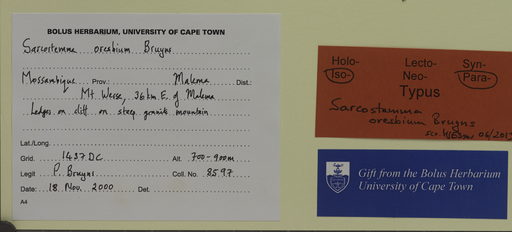 BOLUS HERBARIUM, UNIVERSITY OF CAPE TOWN
Sarcostemma oresbium Bruyns
Mossambique Prov.: Malema Dist.:
Mt. Wesse, 36 km E. of Malema
Ledges on cliff on steep granite mountain
Lat./Long.
Grid. 1437DC Alt. 700-900m
Legit P. Bruyns Coll. No. 8597
Date: 18 Nov. 2000 Det.
A4
Holo- Lecto- Syn-
Iso- Neo- Para-
Typus
Sarcostemma
oresbium Bruyns
06/2013
Gift from the Bolus Herbarium
University of Cape Town